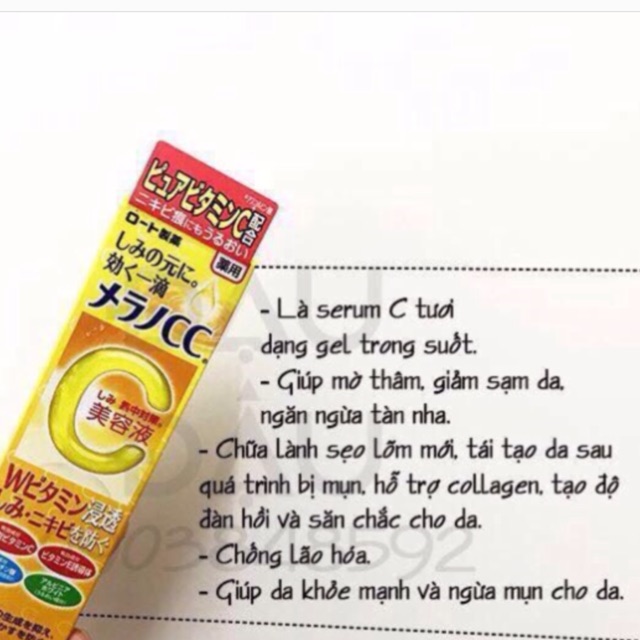 ピュアビタミンC配合
ニキビ痕にもうるおい
ロート製薬
薬用
しみの元に。
効く一滴
メラノCC
C
しみ 集中対策
美容液
Wビタミン浸透
しみ・ニキビを防ぐ
- Là serum C tươi
dạng gel trong suốt.
- Giúp mờ thâm, giảm sạm da,
ngăn ngừa tàn nha.
- Chữa lành sẹo lõm mới, tái tạo da sau
quá trình bị mụn, hỗ trợ collagen, tạo độ
đàn hồi và săn chắc cho da.
- Chống lão hóa.
- Giúp da khỏe mạnh và ngừa mụn cho da.